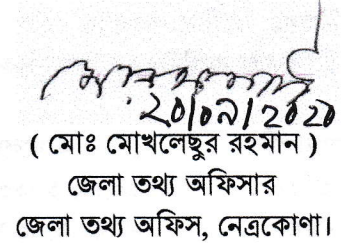 ২০/০৯/2020
( মোঃ মোখলেছুর রহমান )
জেলা তথ্য অফিসার
জেলা তথ্য অফিস, নেত্রকোণা।